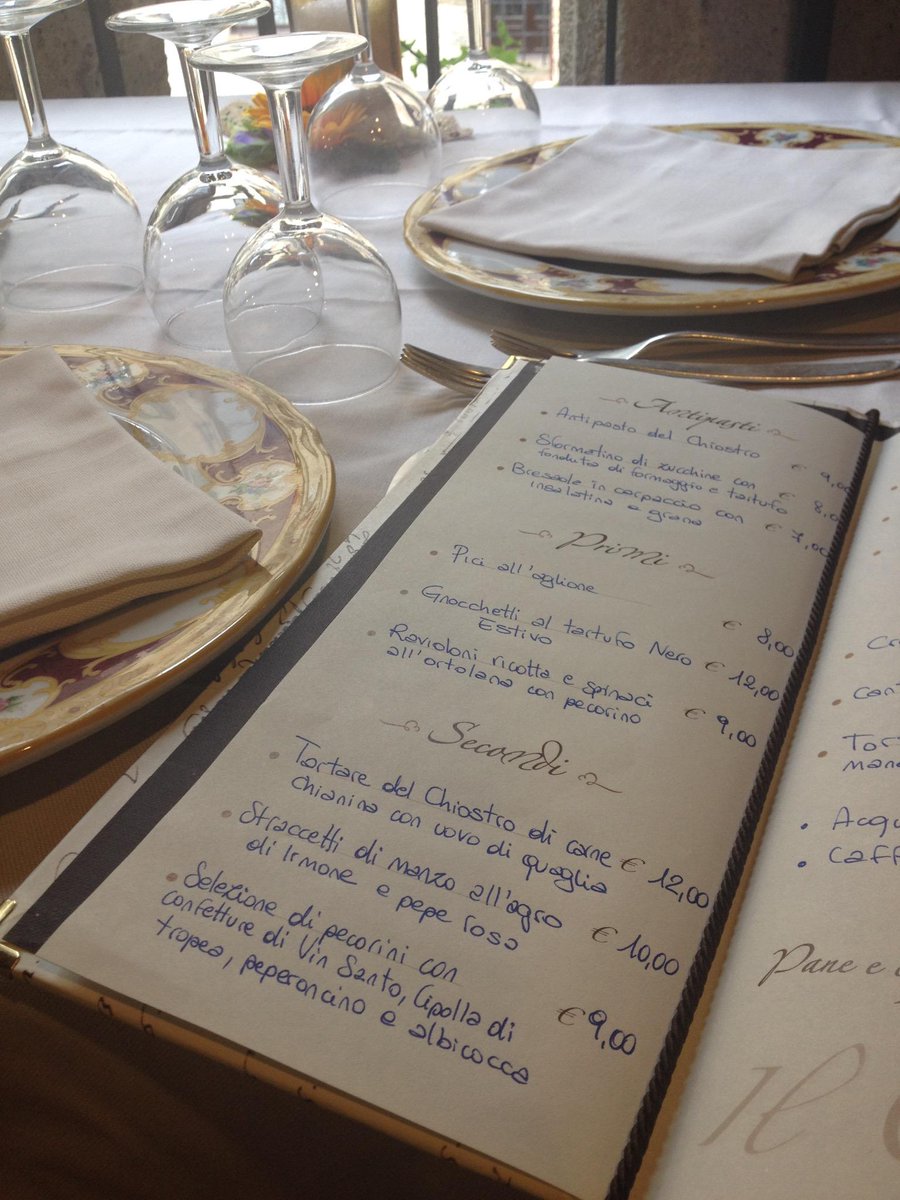 Antipasti
• Antipasto del Chiostro € 9,00
• Sformatino di zucchine con
fonduta di formaggio e tartufo € 8,00
• Bresaole in carpaccio con
insalatina e grana € 7,00
Primi
• Pici all'aglione € 8,00
• Gnocchetti al tartufo Nero
Estivo € 12,00
• Ravioloni ricotta e spinaci
all'ortolana con pecorino € 9,00
Secondi
• Tartare del Chiostro di carne
chianina con uovo di quaglia € 12,00
• Straccetti di manzo all'agro
di limone e pepe rosa € 10,00
• Selezione di pecorini con
confetture di Vin Santo, Cipolla di
tropea, peperoncino e albicocca € 9,00
Pane e
Il